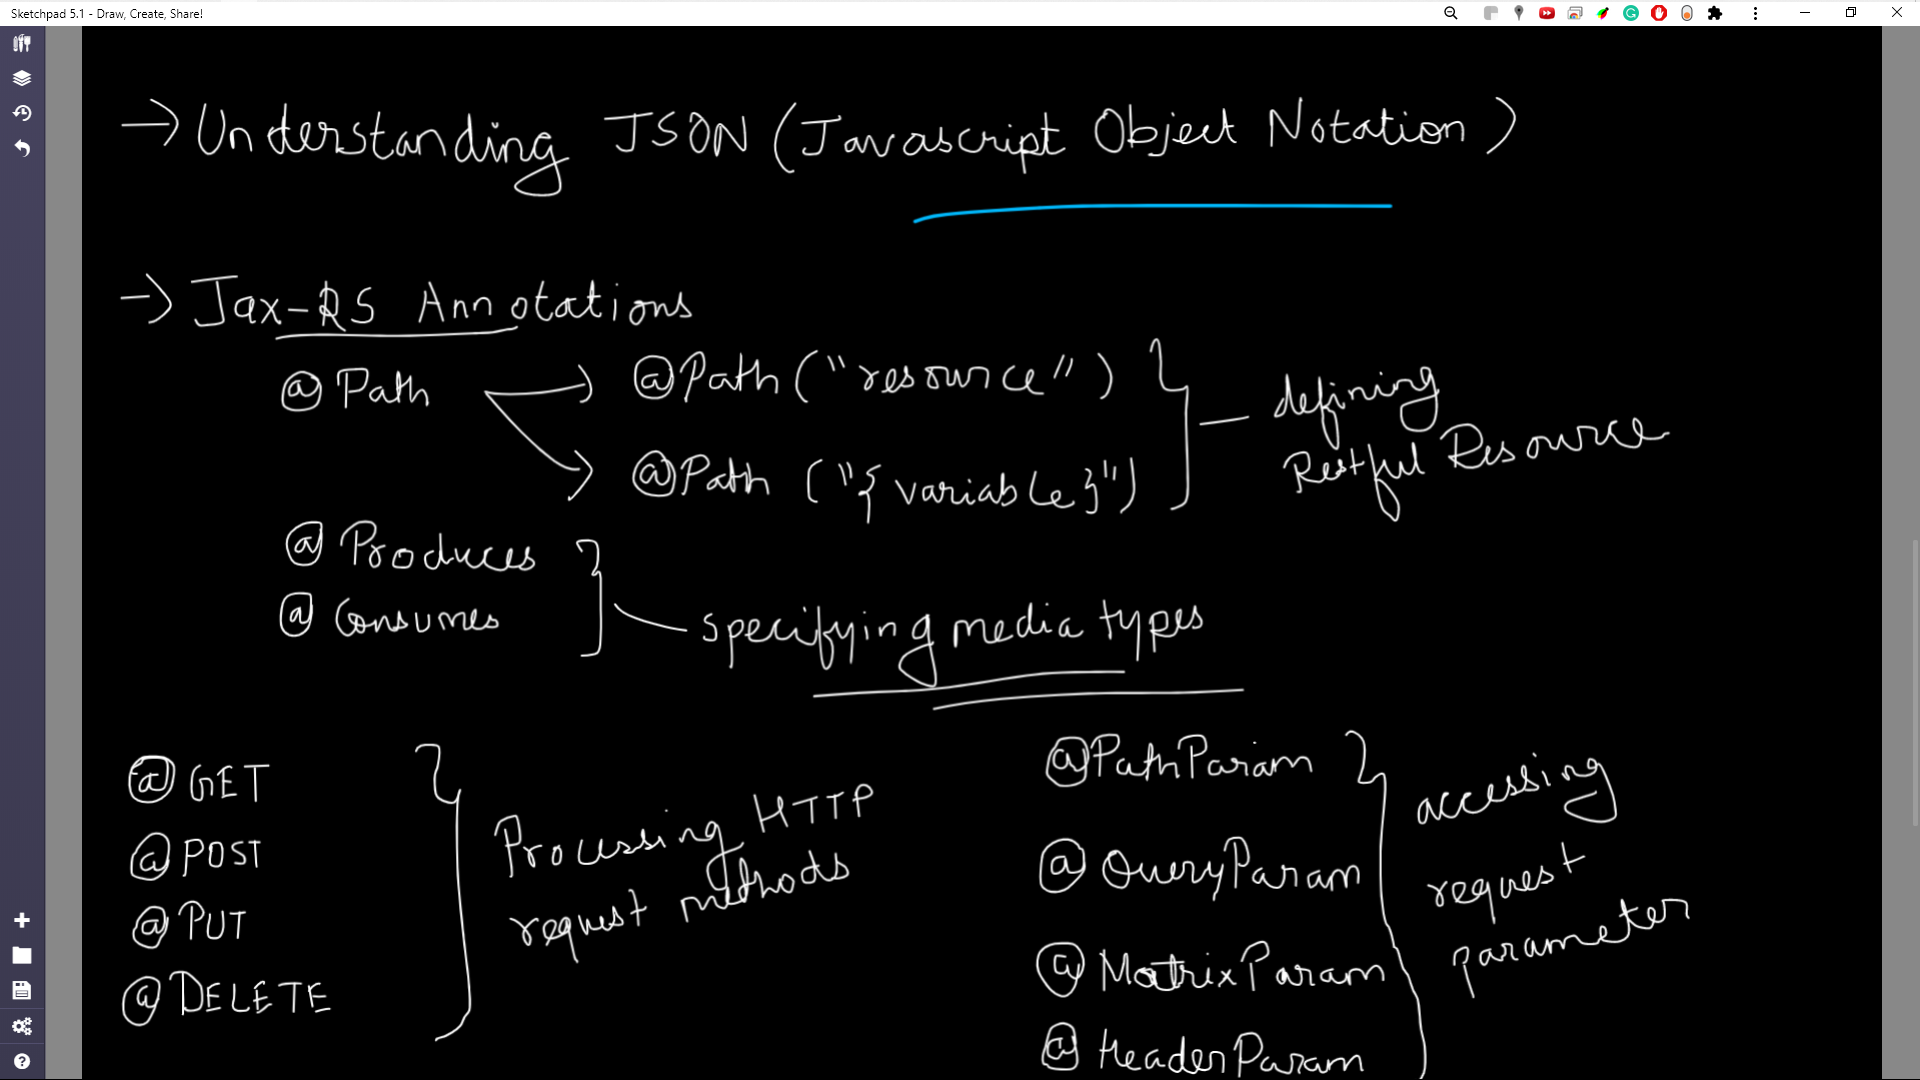 Sketchpad 5.1 - Draw, Create, Share!
→ Understanding JSON (Javascript Object Notation)
→ Jax-RS Annotations
@Path → @Path ("resource")
→ @Path ("{variable}")
defining
Restful Resource
@Produces
@Consumes
specifying media types
@GET
@POST
@PUT
@DELETE
Processing HTTP
request methods
@PathParam
@QueryParam
@MatrixParam
@HeaderParam
accessing
request
parameter